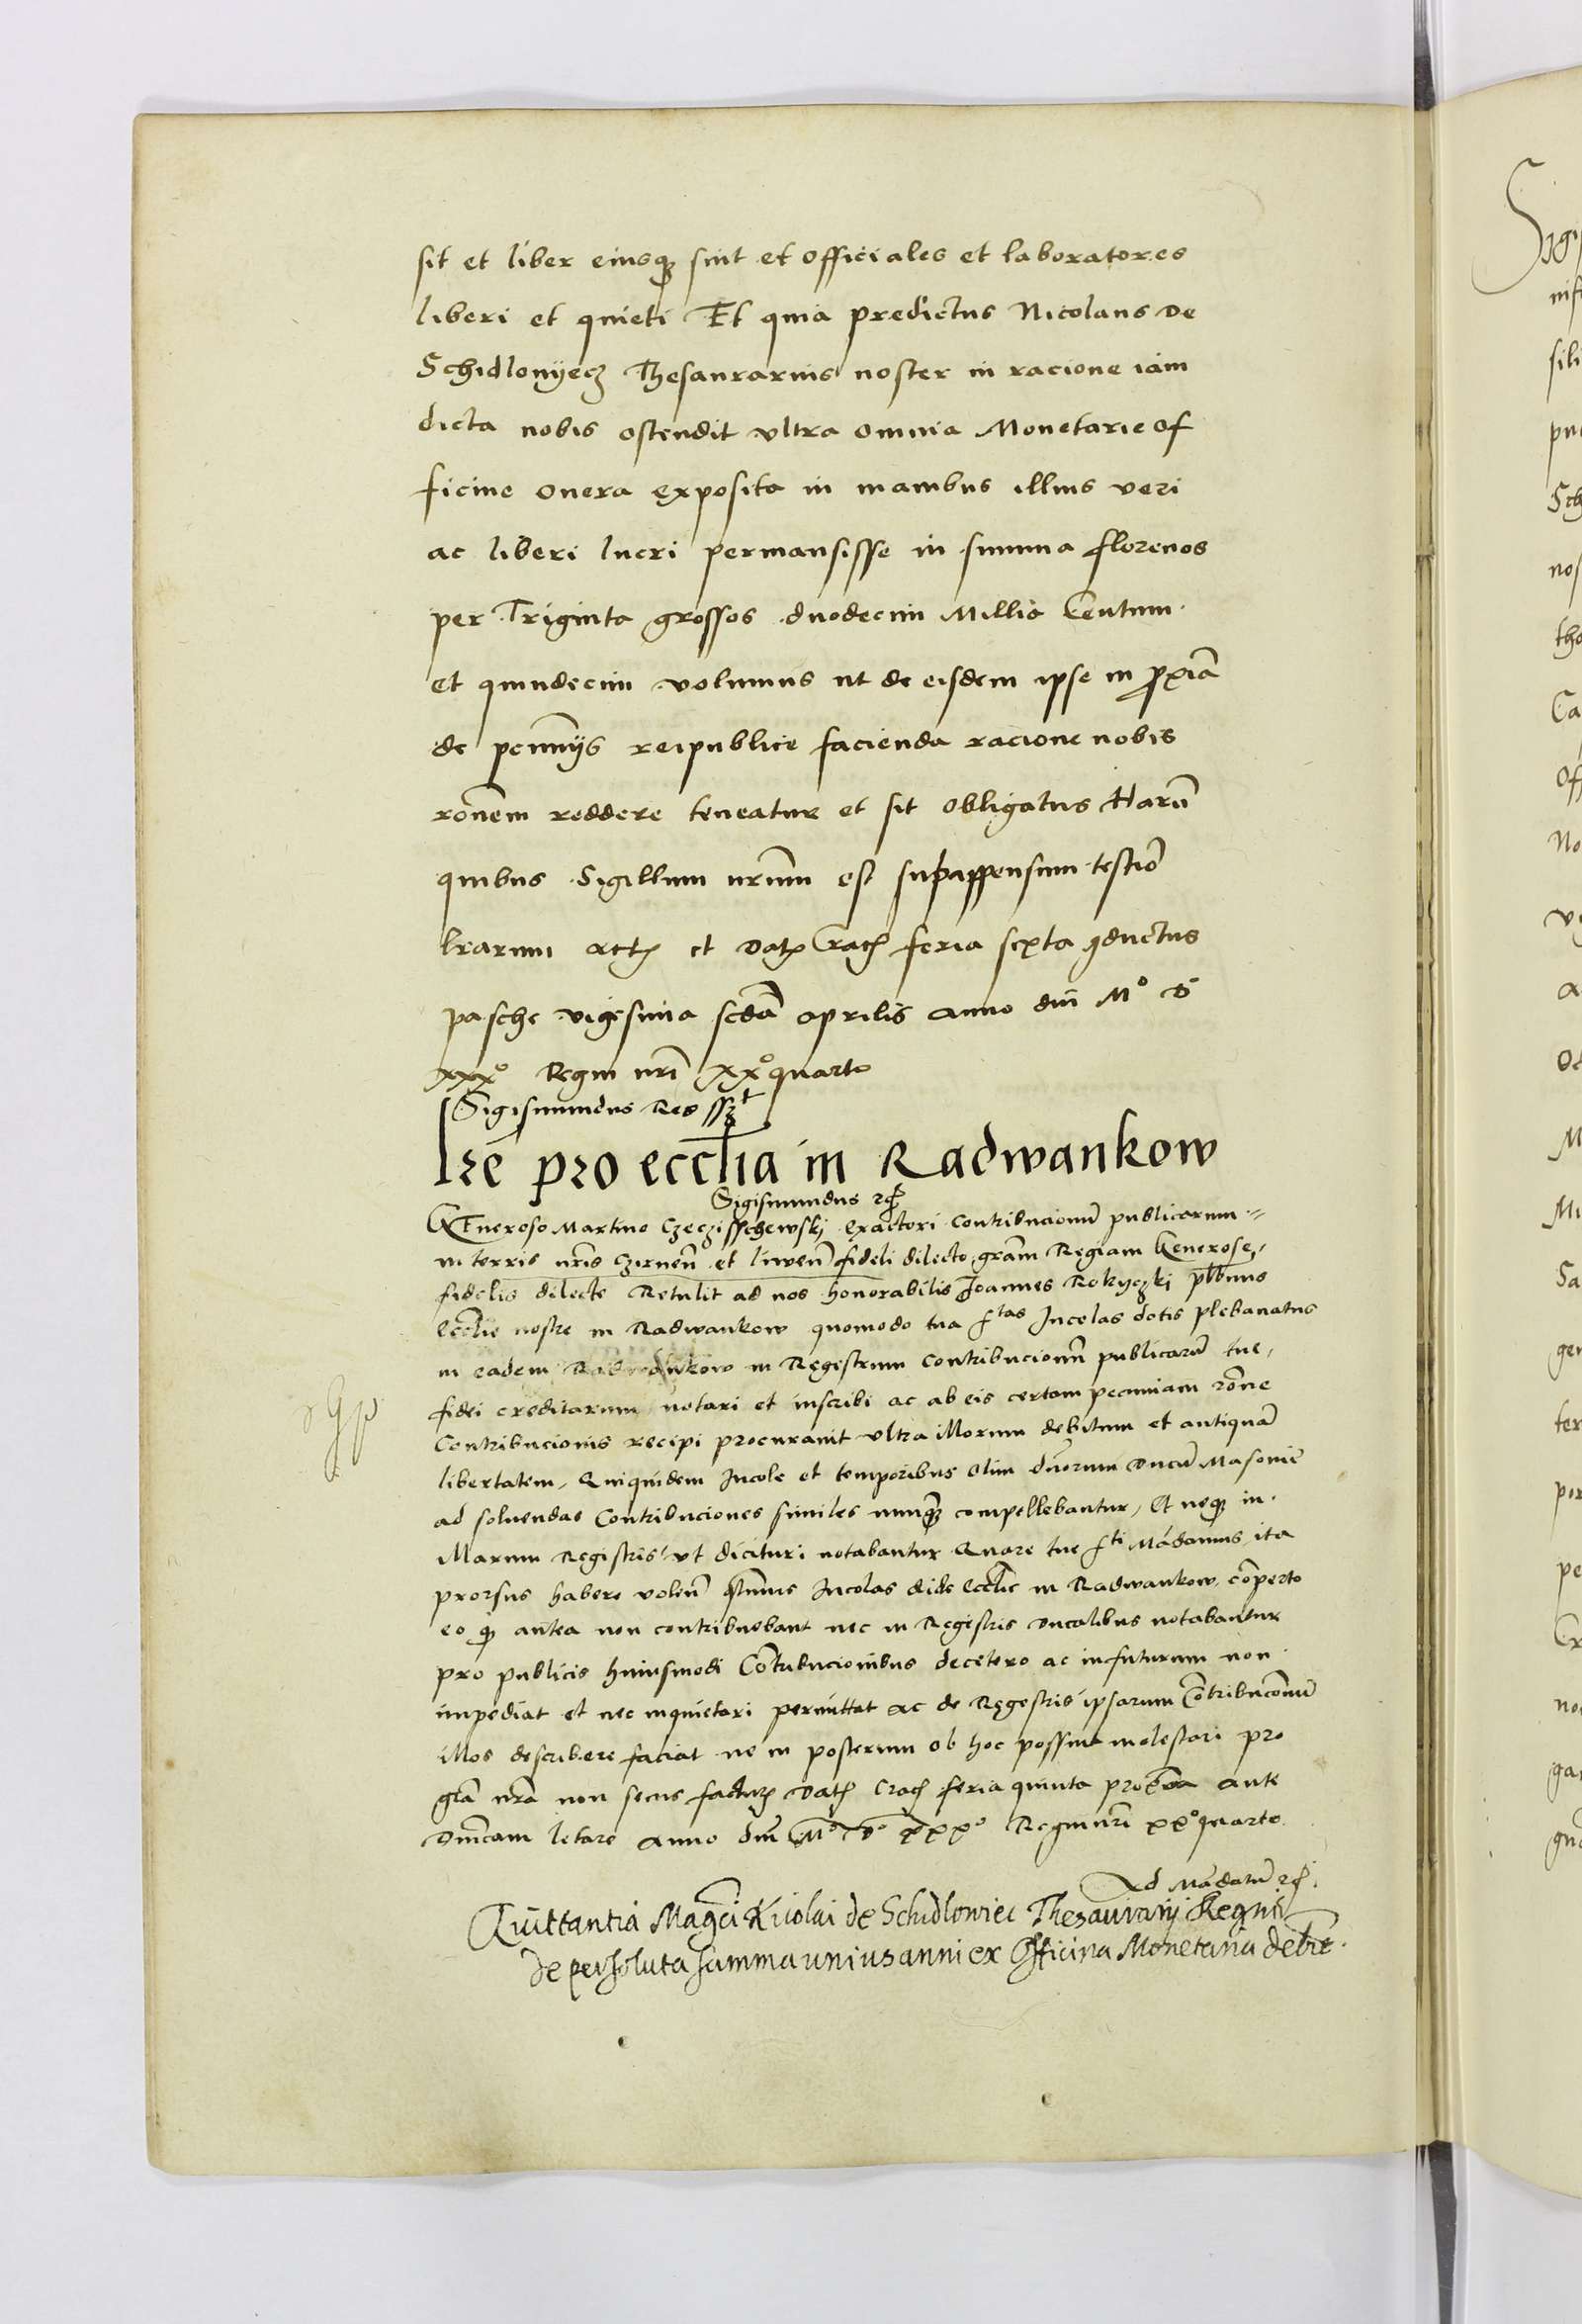 sit et liber eiusq₃ sint et officiales et laboratores
liberi et quieti Et quia predictus Nicolaus de
Schidlovyecz Thesaurarius noster in racione iam
dicta nobis ostendit vltra omnia Monetarie of
ficine onera exposita in manibus illius veri
ac liberi lucri permansisse in summa florenos
per Triginta grossos duodecim Millia Centum
et quindecim volumus ut de eisdem ipse in proxīa
de pecunijs reipublice facienda racione nobis
rōnem reddere teneatur et sit obligatus Harū
quibus Sigillum nrūm est subappensum testiō
lrārum Act₃ et Dat₃ Crac₃ feria sexta 9ductus
pasche vigesima scdā aprilis anno dnī Mº D
xxxº Regni nrī xxºquarto
Sigismundus Rex sszt
Lrē pro eccłia in Radwankow
Sigismundus rc̄
GEneroso Martino Czeczisschewskj exactori Contribucionū publicarum
in terris nrīs Czirneñ et liweñ fideli dilecto grām Regiam Generose
fidelis dilecte Retulit ad nos honorabilis Joannes Rokyczkj plb̄nus
Eccłie nostre in Radwankow quomodo tua ftas Incolas dotis plebanatus
in eadem Radwankow in Regestrum Contribucionū publicarū tue
fidei creditarum notari et inscribi ac ab eis certam pecuniam rōne
Contribucionis recipi procurauit vltra illorum debitum et antiquā
libertatem, Quiquidem Incole et temporibus olim duorum Ducū Masovie
ad soluendas Contribuciones similes nunq̄₃ compellebantur, Et neq₃ in
illarum Registris vt dicitur notabantur Quare tue fti Mādamus ita
prorsus habere voleñ q̄tenus Incolas dicte eccłie in Radwankow, cōperto
eo q₃ antea non contribuebant nec in Regestris ducalibus notabantur
pro publicis huiusmodi Contribucionibus decetero ac infuturum non
impediat et nec inquietari permittat ac de Regestris ipsarum Cōtribucōnū
illos describere faciat ne in posterum ob hoc possint molestari pro
grā nrā non secus factur₃ Dat₃ Crac₃ feria quinta proxīa ante
Dnīcam letare anno dnī Mº Dº xxxº Regni nrī xxºquarto
Ad Mādatū rc̄
Quittantia Magci Nicolai de Schidlowiec Thesaurarij Regni
de persoluta summa unius anni ex Officina Monetaria debite.